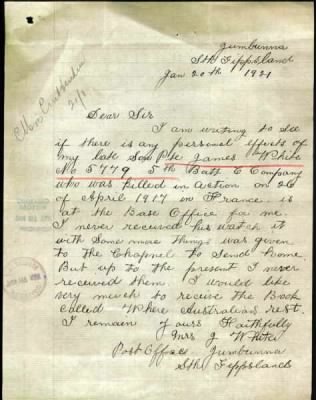 Jumbunna
Sth Gippsland
Jan 20th 1921
Dear Sir
I am writing to see
if there is any personal effects of
my late Son Pte James White
No 5779 5th Batt E Company
who was killed in Action on 26
of April 1917 in France. is
at the Base Office for me.
I never received his watch it
with some more things was given
to the Chaplel to send home.
But up to the present I never
received them. I would like
very much to receive the Book
called "Where Australians rest.
I remain yours Faithfully
Mrs J White
Post Office Jumbunna
Sth Gippsland